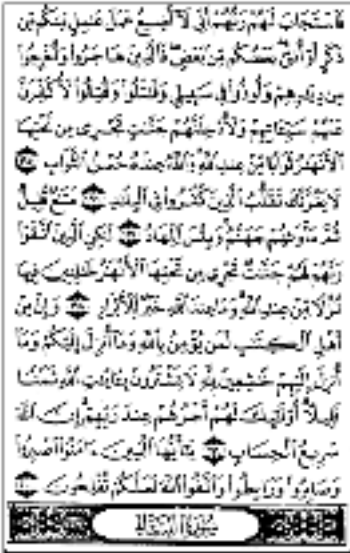 فَاسْتَجَابَ لَهُمْ رَبُّهُمْ أَنِّي لَا أُضِيعُ عَمَلَ عَامِلٍ مِنْكُمْ مِنْ
ذَكَرٍ أَوْ أُنْثَى بَعْضُكُمْ مِنْ بَعْضٍ فَالَّذِينَ هَاجَرُوا وَأُخْرِجُوا
مِنْ دِيَارِهِمْ وَأُوذُوا فِي سَبِيلِي وَقَاتَلُوا وَقُتِلُوا لَأُكَفِّرَنَّ
عَنْهُمْ سَيِّئَاتِهِمْ وَلَأُدْخِلَنَّهُمْ جَنَّاتٍ تَجْرِي مِنْ تَحْتِهَا
الْأَنْهَارُ ثَوَابًا مِنْ عِنْدِ اللَّهِ وَاللَّهُ عِنْدَهُ حُسْنُ الثَّوَابِ
لَا يَغُرَّنَّكَ تَقَلُّبُ الَّذِينَ كَفَرُوا فِي الْبِلَادِ مَتَاعٌ قَلِيلٌ
ثُمَّ مَأْوَاهُمْ جَهَنَّمُ وَبِئْسَ الْمِهَادُ لَكِنِ الَّذِينَ اتَّقَوْا
رَبَّهُمْ لَهُمْ جَنَّاتٌ تَجْرِي مِنْ تَحْتِهَا الْأَنْهَارُ خَالِدِينَ فِيهَا
نُزُلًا مِنْ عِنْدِ اللَّهِ وَمَا عِنْدَ اللَّهِ خَيْرٌ لِلْأَبْرَارِ وَإِنَّ مِنْ
أَهْلِ الْكِتَابِ لَمَنْ يُؤْمِنُ بِاللَّهِ وَمَا أُنْزِلَ إِلَيْكُمْ وَمَا
أُنْزِلَ إِلَيْهِمْ خَاشِعِينَ لِلَّهِ لَا يَشْتَرُونَ بِآيَاتِ اللَّهِ ثَمَنًا
قَلِيلًا أُولَئِكَ لَهُمْ أَجْرُهُمْ عِنْدَ رَبِّهِمْ إِنَّ اللَّهَ
سَرِيعُ الْحِسَابِ يَا أَيُّهَا الَّذِينَ آمَنُوا اصْبِرُوا
وَصَابِرُوا وَرَابِطُوا وَاتَّقُوا اللَّهَ لَعَلَّكُمْ تُفْلِحُونَ
سُورَةُ النِّسَاءِ